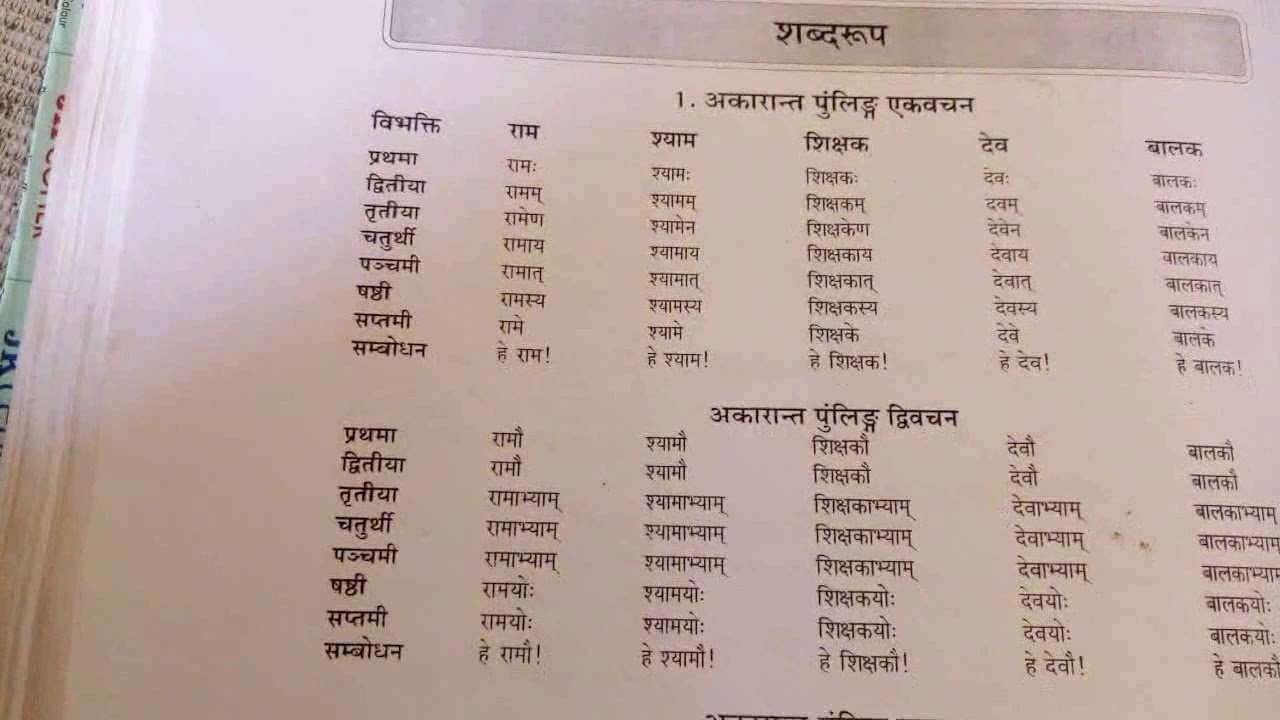 शब्दरूप
1. अकारान्त पुंलिङ्ग एकवचन
विभक्ति राम श्याम शिक्षक देव बालक
प्रथमा रामः श्यामः शिक्षकः देवः बालकः
द्वितीया रामम् श्यामम् शिक्षकम् देवम् बालकम्
तृतीया रामेण श्यामेन शिक्षकेण देवेन बालकेन
चतुर्थी रामाय श्यामाय शिक्षकाय देवाय बालकाय
पञ्चमी रामात् श्यामात् शिक्षकात् देवात् बालकात्
षष्ठी रामस्य श्यामस्य शिक्षकस्य देवस्य बालकस्य
सप्तमी रामे श्यामे शिक्षके देवे बालके
सम्बोधन हे राम! हे श्याम! हे शिक्षक! हे देव! हे बालक!
अकारान्त पुंलिङ्ग द्विवचन
प्रथमा रामौ श्यामौ शिक्षकौ देवौ बालकौ
द्वितीया रामौ श्यामौ शिक्षकौ देवौ बालकौ
तृतीया रामाभ्याम् श्यामाभ्याम् शिक्षकाभ्याम् देवाभ्याम् बालकाभ्याम्
चतुर्थी रामाभ्याम् श्यामाभ्याम् शिक्षकाभ्याम् देवाभ्याम् बालकाभ्याम
पञ्चमी रामाभ्याम् श्यामाभ्याम् शिक्षकाभ्याम् देवाभ्याम् बालकाभ्याम
षष्ठी रामयोः श्यामयोः शिक्षकयोः देवयोः बालकयोः
सप्तमी रामयोः श्यामयोः शिक्षकयोः देवयोः बालकयोः
सम्बोधन हे रामौ! हे श्यामौ! हे शिक्षकौ! हे देवौ! हे बालकौ